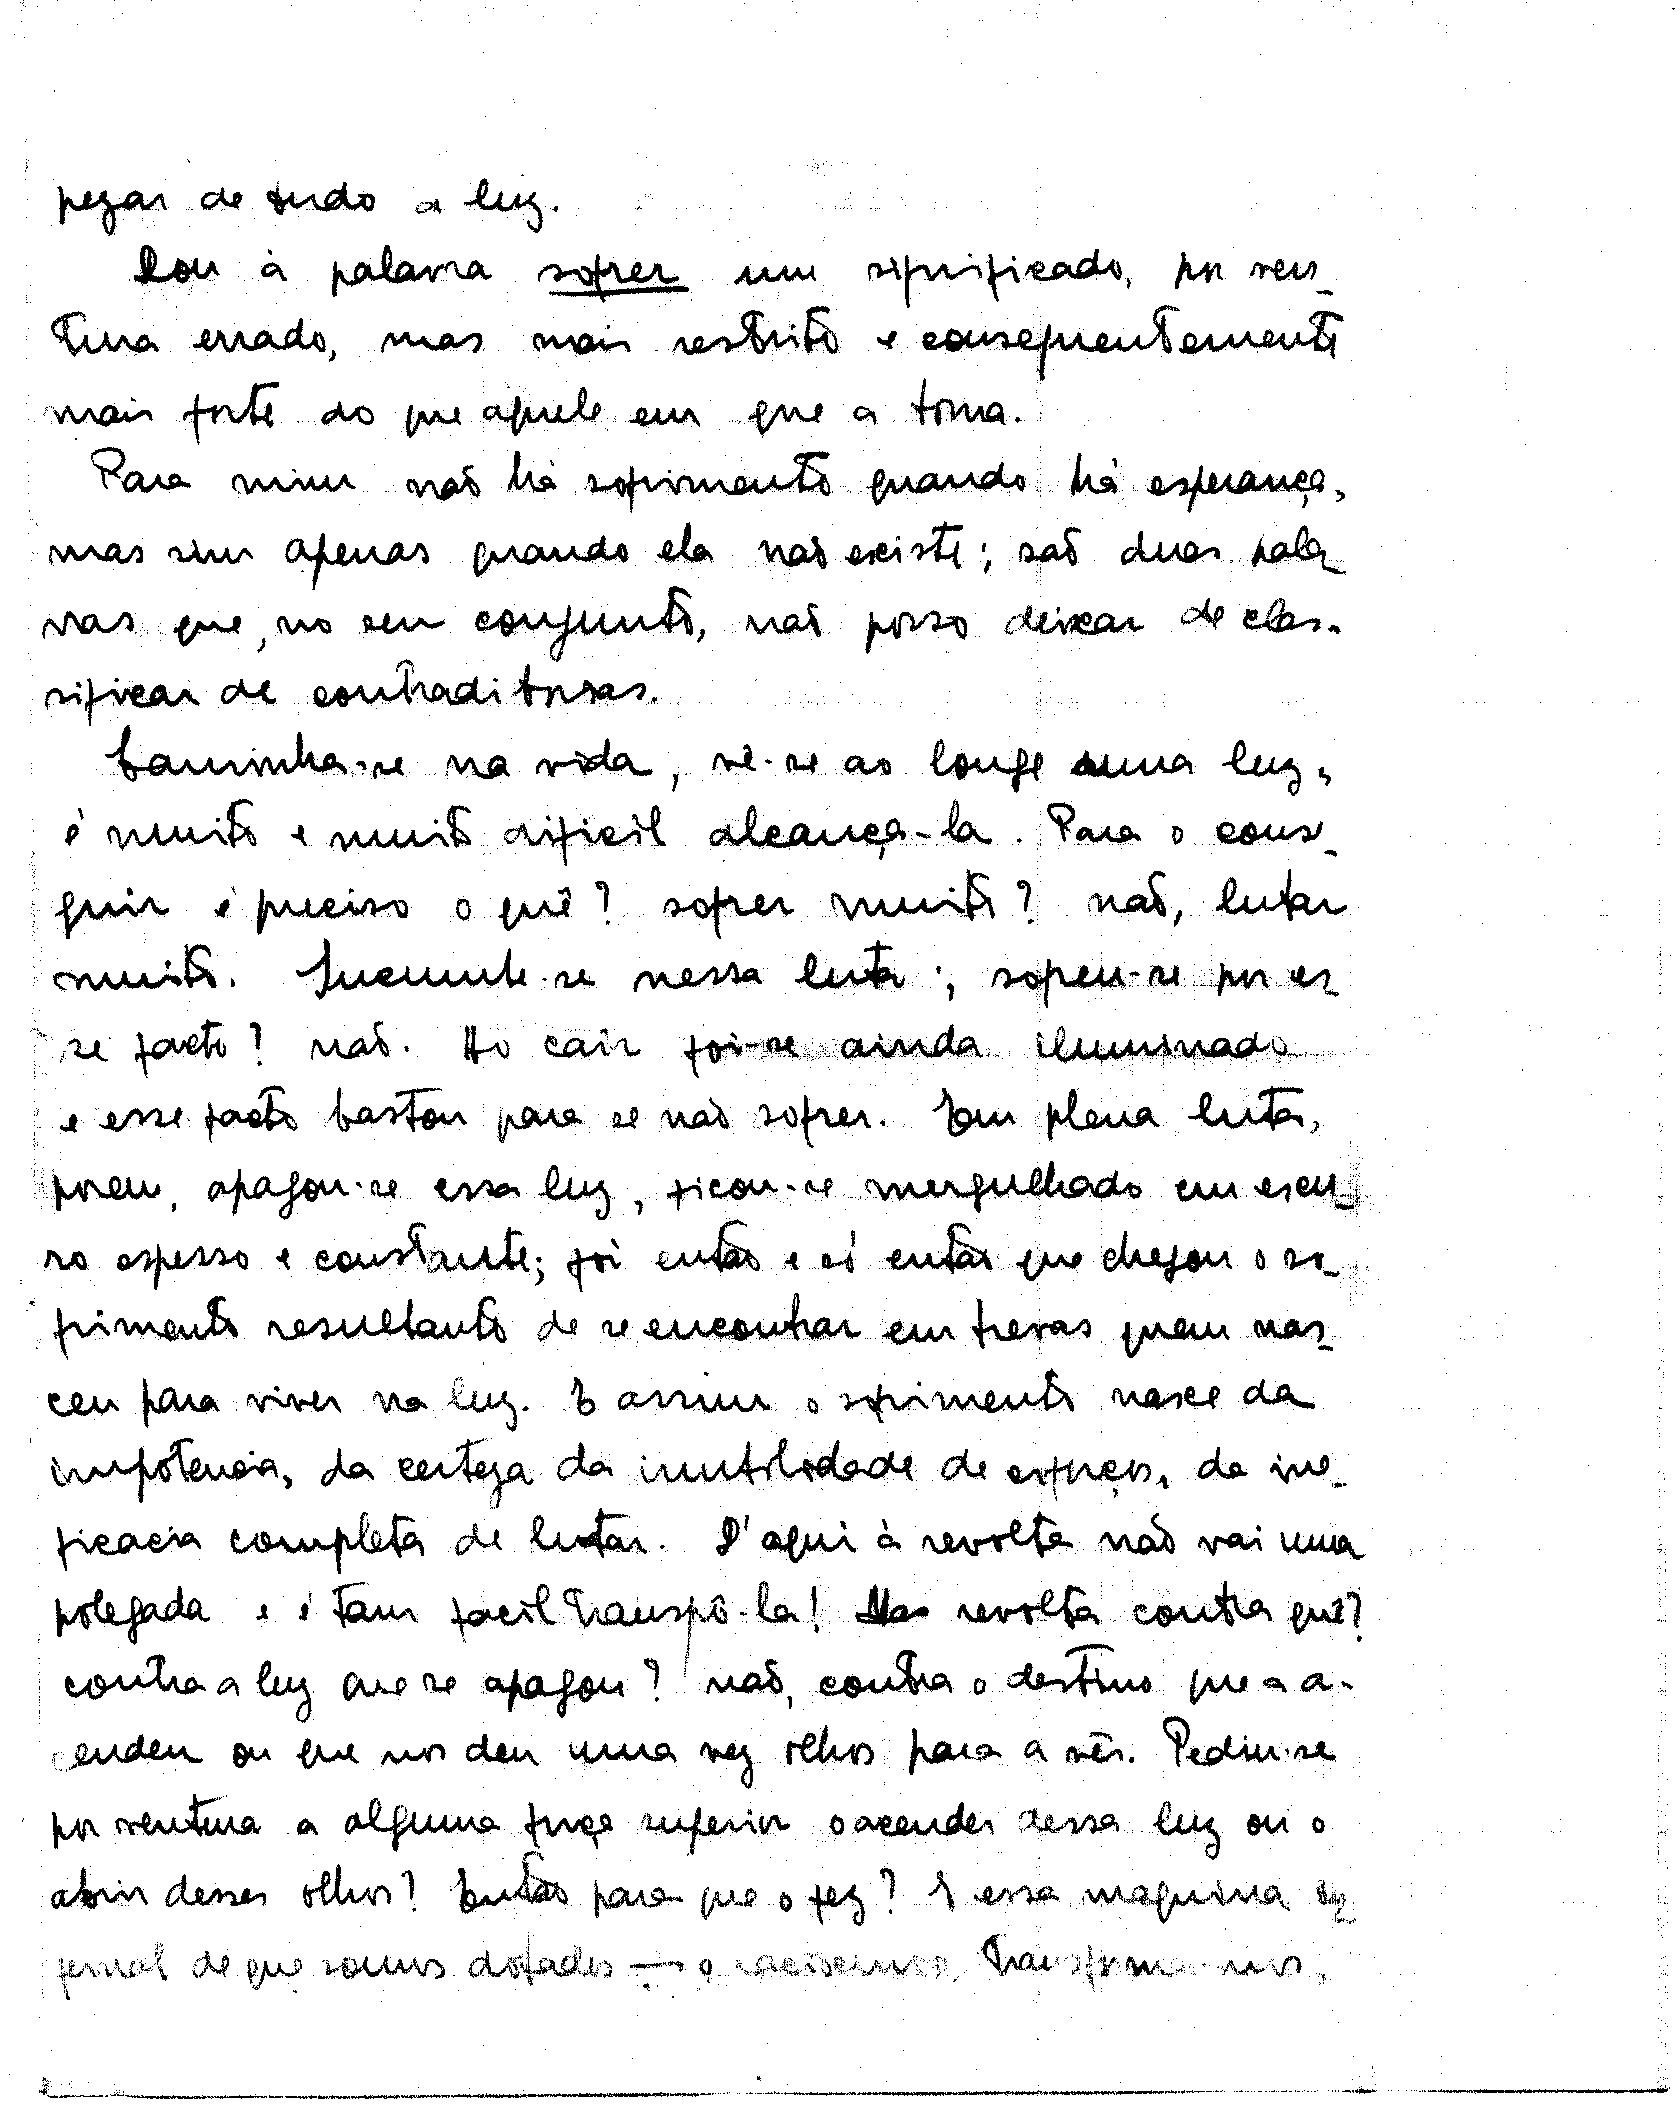 pezar de tudo a luz.
Dou à palavra sofrer um significado, por ven-
tura errado, mas mais restrito e consequentemente
mais forte do que aquele em que a toma.
Para mim não há sofrimento quando há esperança,
mas sim apenas quando ela não existe; são duas pala-
vras que, no seu conjunto, não posso deixar de clas-
sificar de contraditorias.
Caminha-se na vida, vê-se ao longe uma luz,
é muito e muito dificil alcança-la. Para o conse-
guir é preciso o quê? sofrer muito? não, lutar
muito. Sucumbe-se nessa luta; sofreu-se por es-
se facto? não. Ao cair foi-se ainda iluminado
e esse facto bastou para se não sofrer. Em plena luta,
porem, apagou-se essa luz, ficou-se mergulhado em escu-
ro espesso e constante; foi então e só então que chegou o so-
frimento resultante de se encontrar em trevas quem nas-
ceu para viver na luz. E assim o sofrimento nasce da
impotencia, da certeza da inutilidade de esforços, da ine-
ficacia completa de lutar. D'aqui à revolta não vai uma
polegada e é tam facil transpô-la! Mas revolta contra quê?
contra a luz que se apagou? não, contra o destino que a a-
cendeu ou que nos deu uma vez olhos para a vêr. Pediu-se
por ventura a alguma força superior o acender dessa luz ou o
abrir desses olhos? Então para que o fez? E essa maquina in-
fernal de que somos dotados — o raciocinio, transforma-nos,